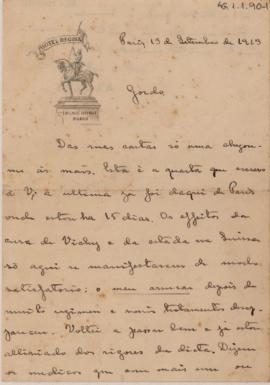 4G.1.1.90-1
HOTEL REGINA
PARIS
Paris, 13 de Setembro de 1913
Gordo
Das suas cartas só uma chegou-
me ás mãos. Esta é a quarta que escrevo
a V; a ultima ja foi daqui de Paris
onde estou ha 15 dias. Os effeitos da
cura de Vichy e da estada na Suissa
só aqui se manifestaram de modo
satisfatorio: o meu depois de
muito regimen e varios tratamentos desap-
pareceu. Voltei a passar bem e já estou
alliviado dos rigores da dieta. Dizem
os medicos que com mais um ou